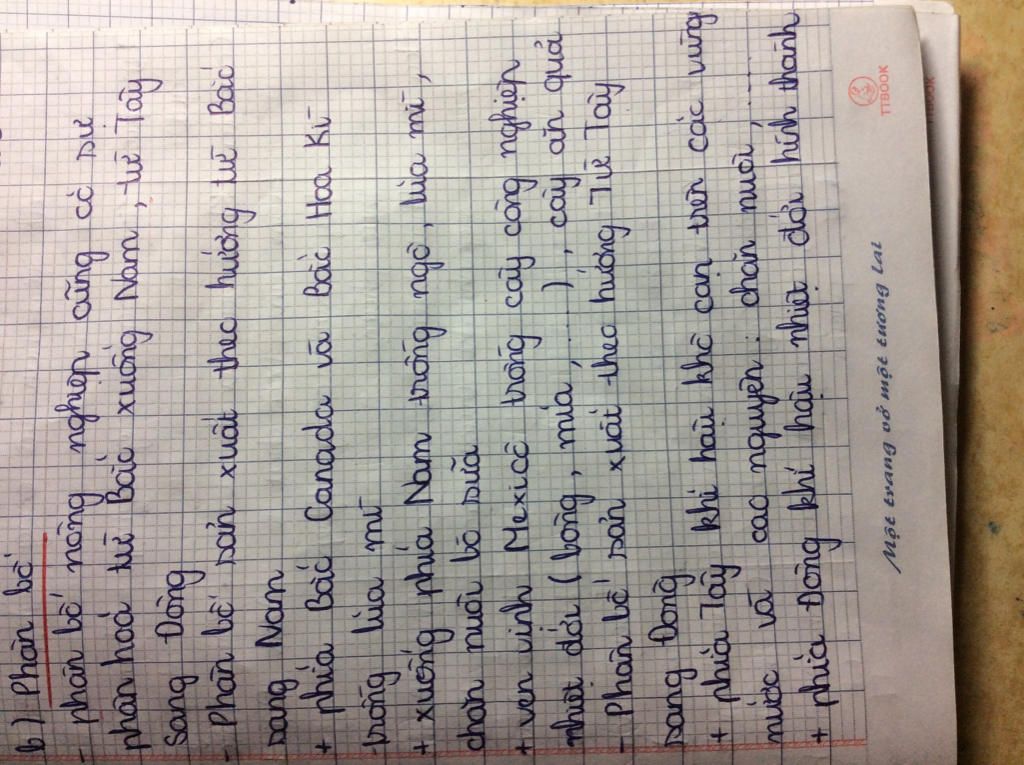 b) Phân bố
- phân bố nông nghiệp cũng có sự
phân hoá từ Bắc xuống Nam, từ Tây
Sang Đông
- Phân bố sản xuất theo hướng từ Bắc
sang Nam
+ phía Bắc Canada và Bắc Hoa Kì
trồng lúa mì
+ xuống phía Nam trồng ngô, lúa mì,
chăn nuôi bò sữa
+ ven vịnh Mexicô trồng cây công nghiệp
nhiệt đới (bông, mía, .....), cây ăn quả
- Phân bố sản xuất theo hướng Từ Tây
sang Đông
+ phía Tây khí hậu khô cạn trên các vùng
nước và cao nguyên: chăn nuôi, .....
+ phía Đông khí hậu nhiệt đới hình thành
Một trang vở một tương lai
TTBOOK